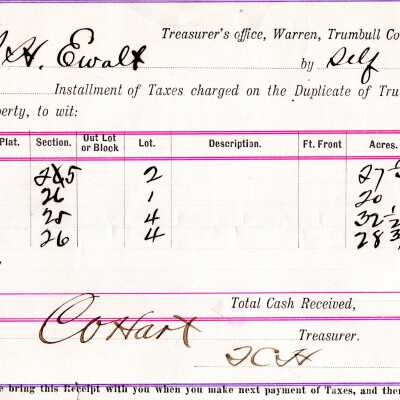 Treasurer's office, Warren, Trumbull Co
H. Ewalt by Self
Installment of Taxes charged on the Duplicate of Tru
perty, to wit:
Plat. Section. Out Lot or Block Lot. Description. Ft. Front Acres.
25 2 27
26 1 20
25 4 32 1/2
26 4 28
Total Cash Received,
C O Hart Treasurer.
e bring this Receipt with you when you make next payment of Taxes, and ther